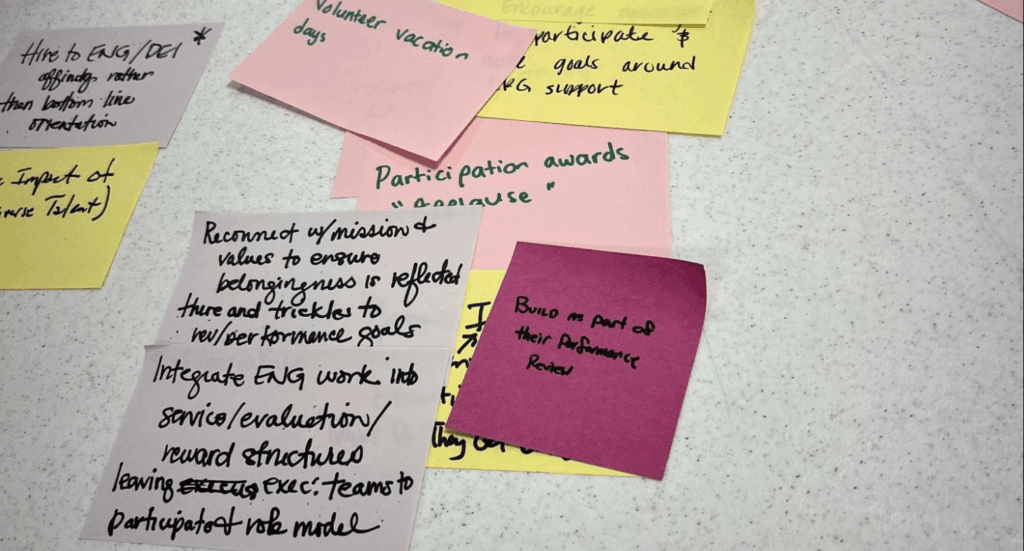 Hire to ENG/DEI *
affinity rather
than bottom line
orientation
Impact of
Talent)
Volunteer vacation
days
Encourage
participate &
goals around
support
Participation awards
"Applause"
Reconnect w/mission &
values to ensure
belongingness is reflected
there and trickles to
rev/performance goals
Integrate ENG work into
service/evaluation/
reward structures
leaving exec. teams to
participate & role model
I
They
Build as part of
their Performance
Review